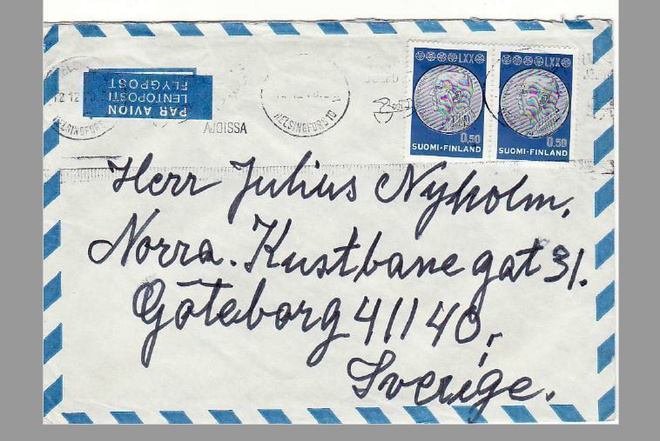 PAR AVION
LENTOPOSTI
FLYGPOST
12.12.70
HELSINGFORS
HELSINGFORS 10
AJOISSA
LXX
0,50
SUOMI-FINLAND
LXX
0,50
SUOMI-FINLAND
Herr Julius Nyholm.
Norra. Kustbane gat 31.
Göteborg 411 40,
Sverige.